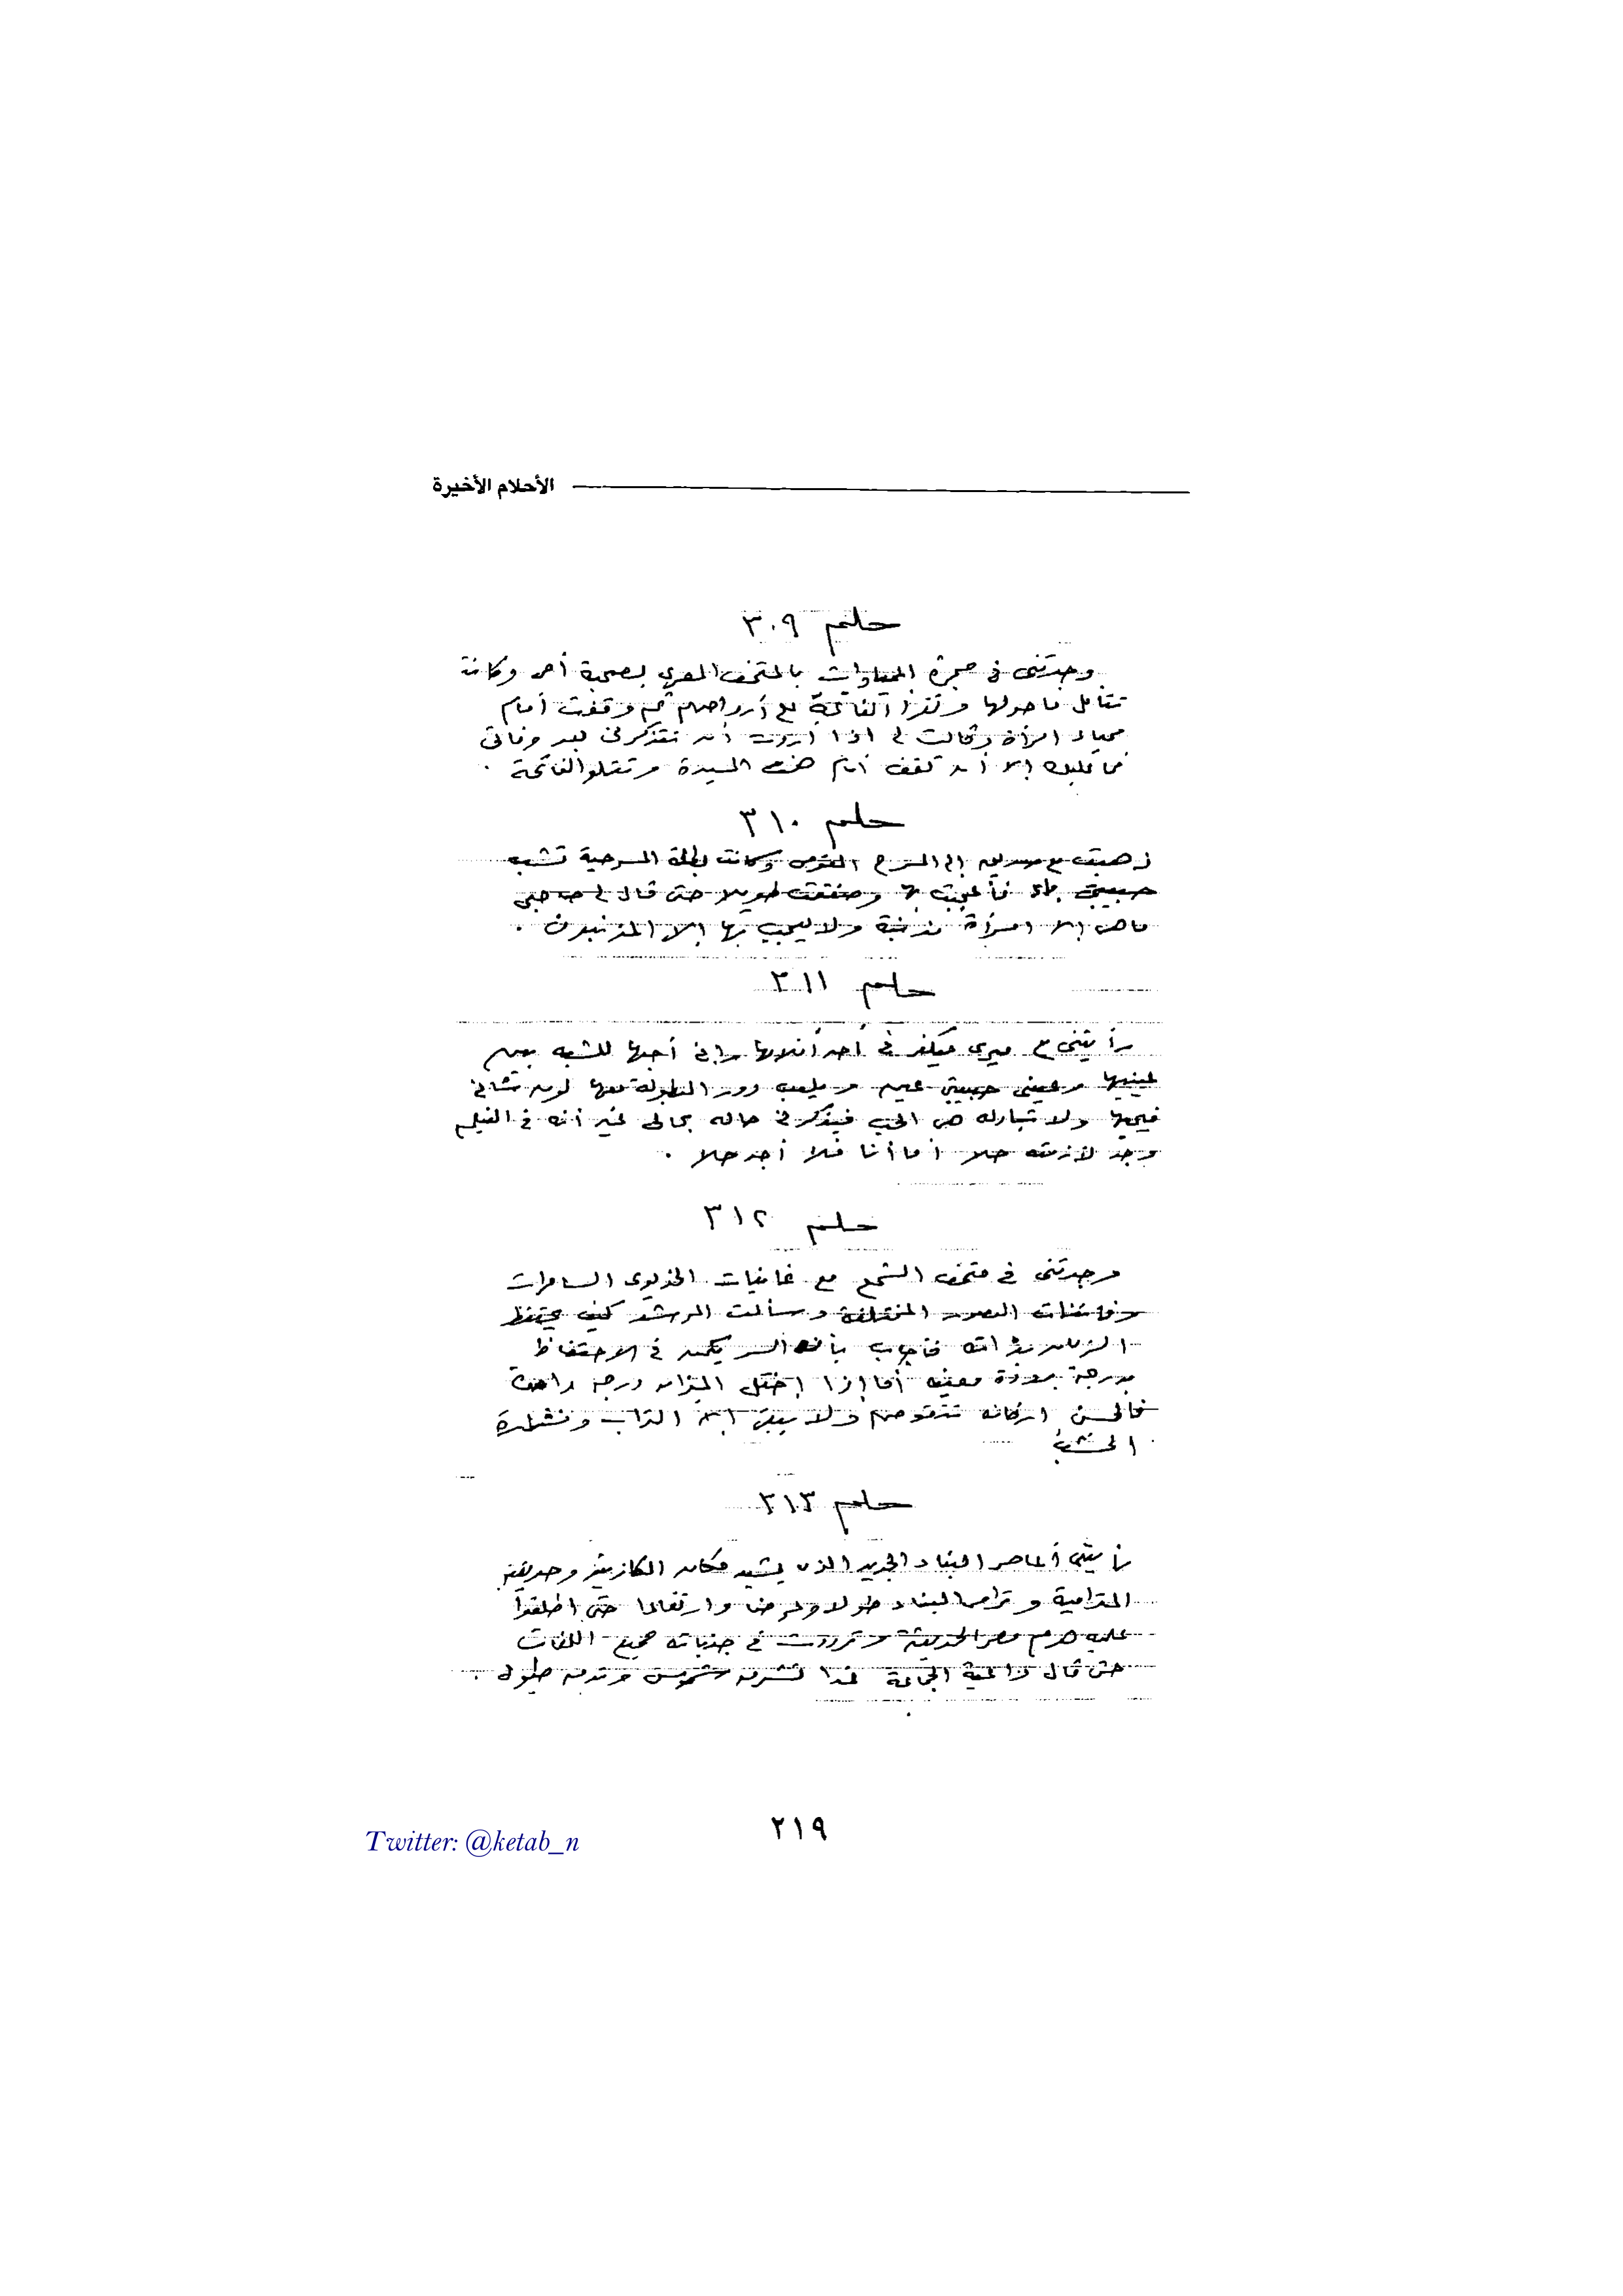 الأحلام الأخيرة
حلم ٣٠٩
وجدتنى فى حجرة المومياوات بالمتحف المصرى بصحبة أحمد وكانت
تتأمل ما حولها وتقرأ الفاتحة على أرواحهم ثم وقفت أمام
مومياء امرأة وقالت لى اذا أردت أن تتذكرنى بعد وفاتى
فما عليك إلا أن تقف أمام هذه السيدة وتتلو الفاتحة .
حلم ٣١٠
ذهبت مع صديق إلى المسرح القومى وكانت بطلة المسرحية تشبه
حبيبتى فأعجبت بها وصفقت طويلا حتى قال لى صاحبى
ما هى إلا امرأة مذنبة ولا يعجب بها إلا المذنبون .
حلم ٣١١
رأيتنى مع ميرى بيكفر فى أحد أفلامها وإنى أحبها للشبه بين
عينيها وعينى حبيبتى عين ويلعب دور البطولة معها لون تشانى
فيحبها ولا تبادله هى الحب فيذكرنى حاله بحالى غير أنه فى الفيلم
وجد لأزمته حلا أما أنا فلا أجد حلا .
حلم ٣١٢
وجدتنى فى متحف الشمع مع غانيات الخديوى الساحرات
وفاتنات العصور المختلفة وسألت المرشد كيف يحتفظ
الزمان بذاته فأجاب بأن السر يكمن فى الاحتفاظ
بدرجة برودة معينة أما إذا إختل الميزان درجة واحدة
فالحسن أركانه تتقوض ولا يبقى إلا التراب ونشارة
الخشب
حلم ٣١٣
رأيتنى أعاصر البناء الجديد الذى يشيد مكان الكازينو وحديقته
المترامية وترامى البناء طولا وعرضا وارتفاعا حتى أطلقوا
عليه هرم مصر الحديثة وترددت فى جنباته جميع اللغات
حتى قال داعية الجماعة غدا تشرق شموس وتدق طبول .
٢١٩
Twitter: @ketab_n